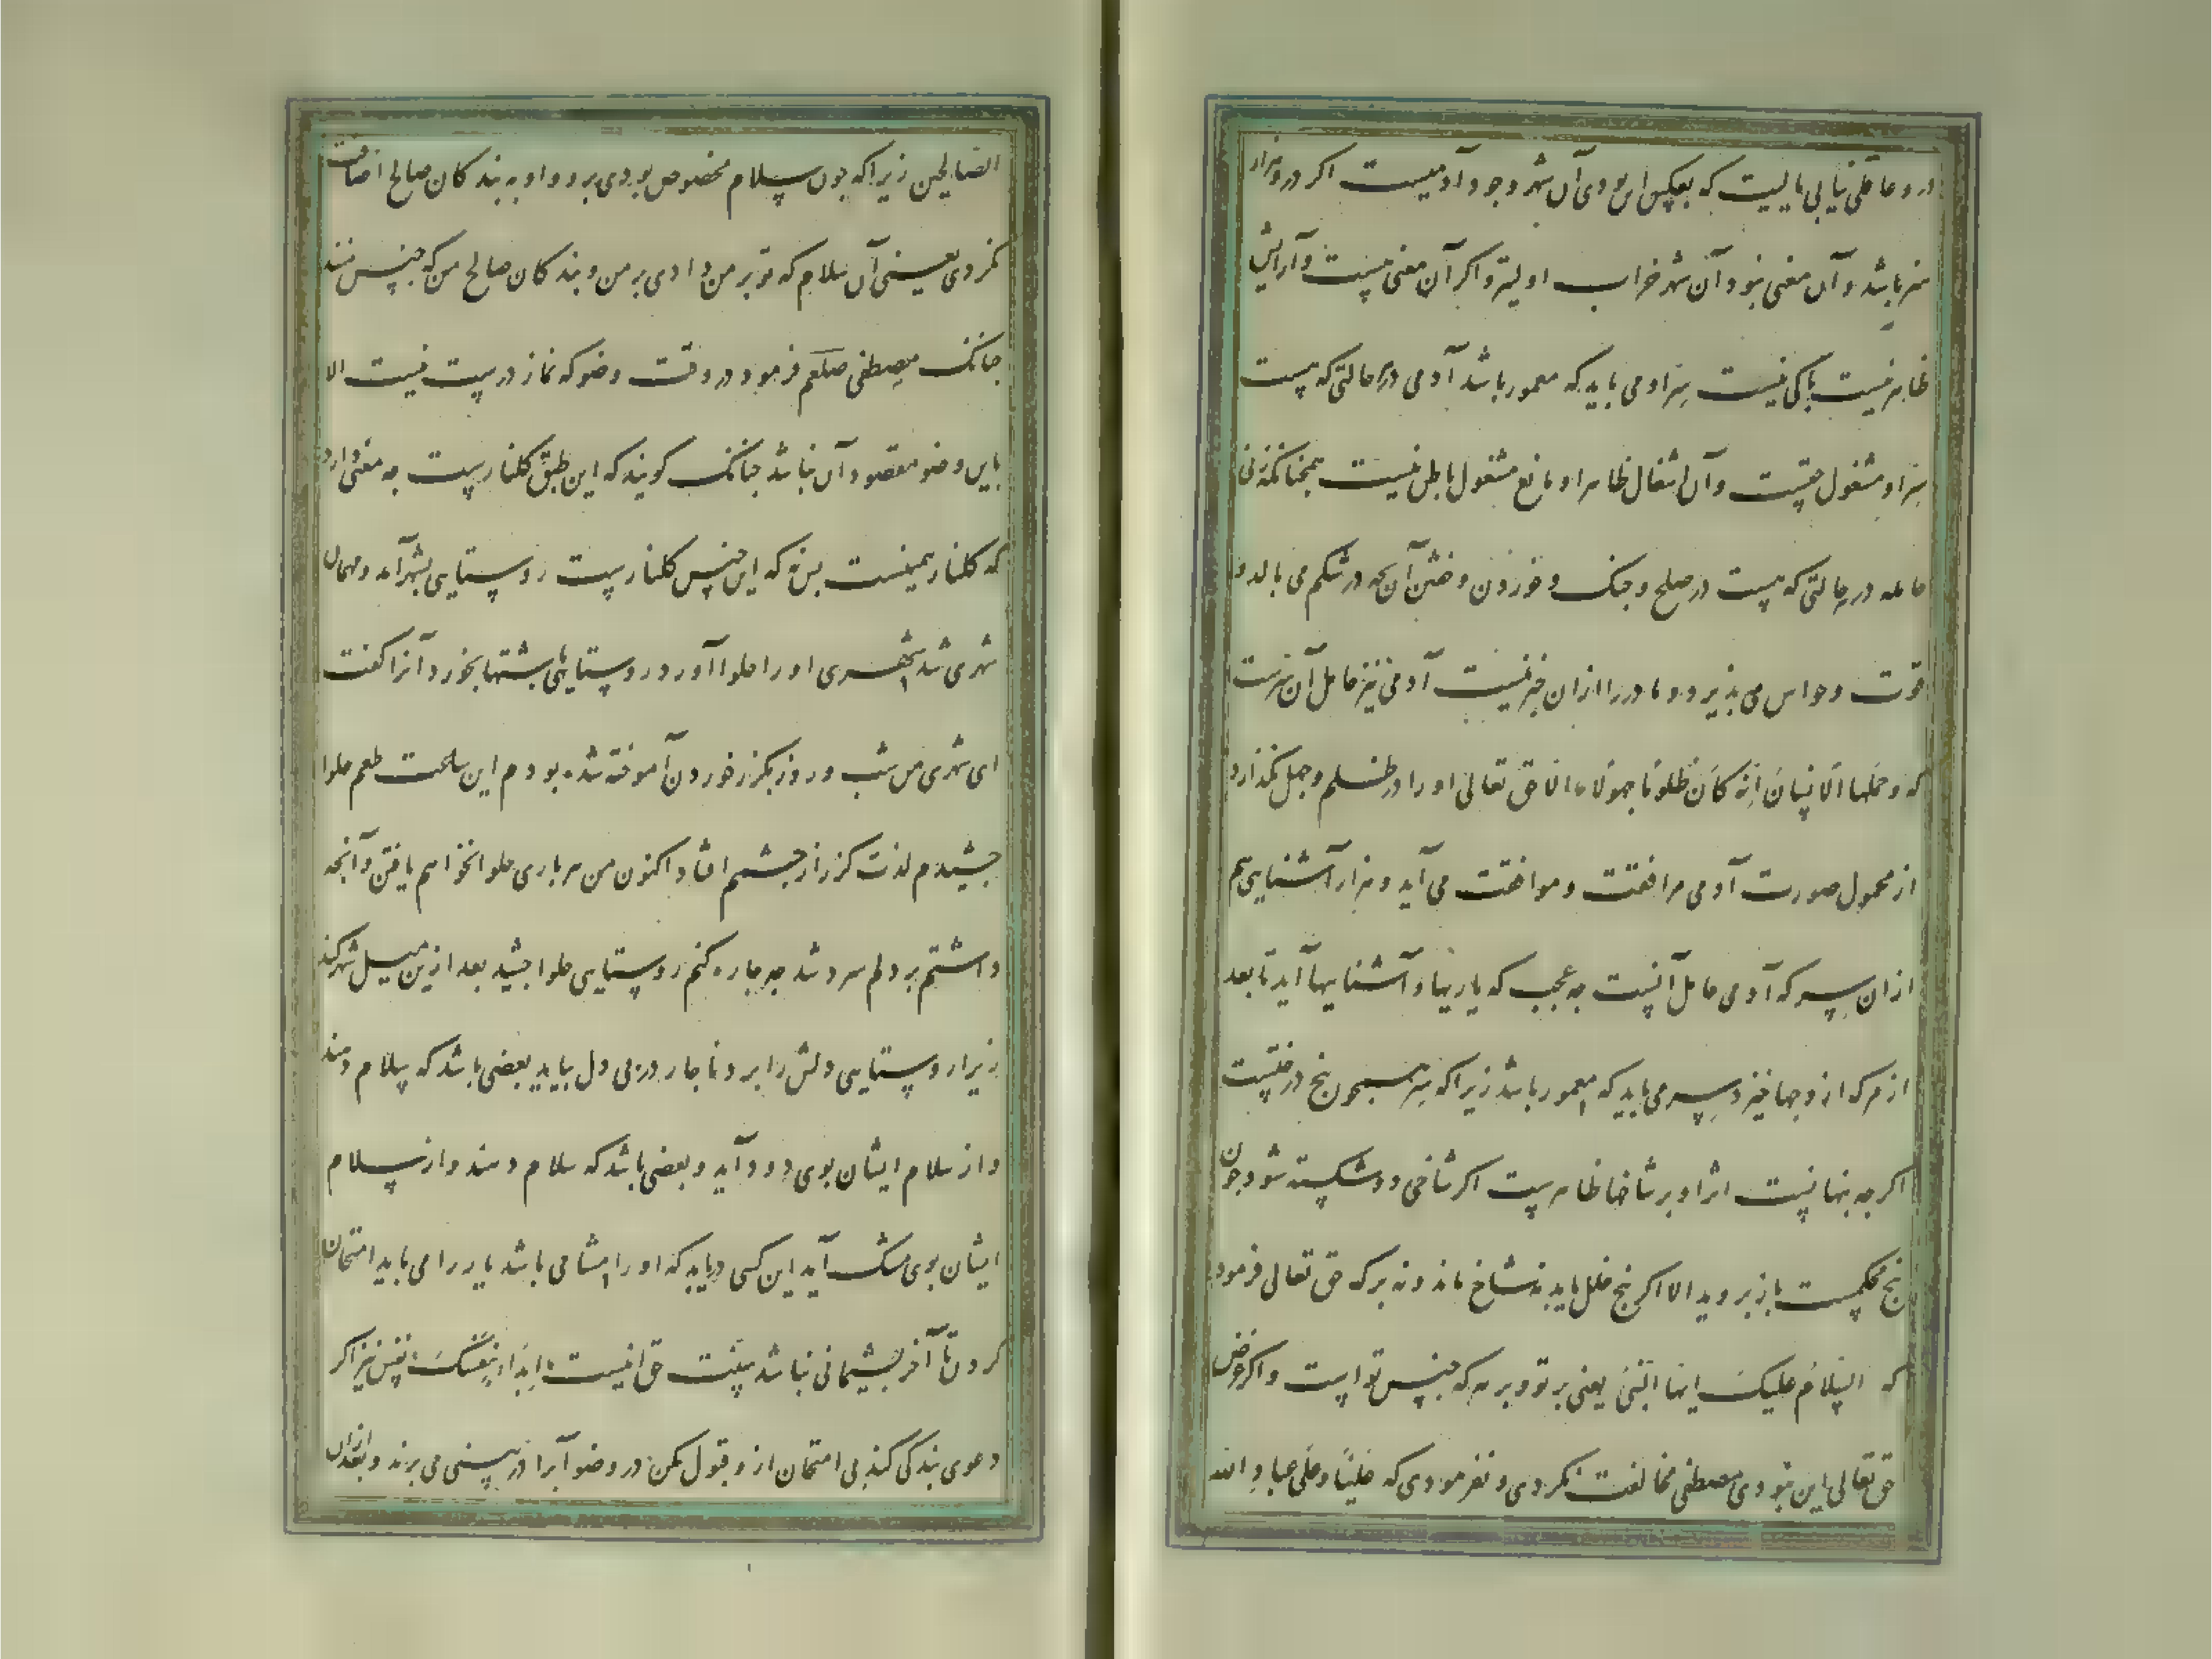 درو عاقلی نیابی یا لیت که بعکس این بودی آن شهر وجود آدمیست اگر درو هزار
هنر باشد و آن معنی نبود آن شهر خراب اولیتر و اگر آن معنی هست و آرایش
ظاهر نیست باکی نیست سرّ او می باید که معمور باشد آدمی در هر حالتی که هست
سرّ او مشغول حقست و آن اشتغال ظاهر او مانع مشغول باطن نیست همچنانکه زنی
حامله در هر حالتی که هست در صلح و جنک و خوردن و خفتن آن بچه در شکم می بالد و
قوت و حواس می پذیرد و مادر را ازان خبر نیست آدمی نیز حامل آن سرست
که و حملها الانسان انه کان ظلوما جهولا الا حق تعالی او را در ظلم و جهل نکذارد
از محمول صورت آدمی مرافقت و موافقت می آید و هزار آشنایی هم
ازان سر که آدمی حامل آنست چه عجب که یاریها و آشنایها آید تا بعد
از مرک ازو چها خیزد سر می باید که معمور باشد زیرا که سر همچون بیخ درختست
اکر چه پنهانست اثر او بر شاخها ظاهرست اکر شاخی دو شکسته شود چون
بیخ محکمست باز بروید الا اکر بیخ خلل یابد نه شاخ ماند و نه برک حق تعالی فرمود
که السلام علیک ایها النبی یعنی بر تو و بر هر که جنس تو است و اکر غرض
حق تعالی این نبودی مصطفی مخالفت نکردی و نفرمودی که علینا و علی عباد الله
الصالحین زیرا که چون سلام مخصوص بودی برو و او به بندکان صالح اضافت
نکردی یعنی آن سلام که تو بر من دادی بر من و بندکان صالح من که جنس منند
چنانک مصطفی صلعم فرمود در وقت وضو که نماز درست نیست الا
باین وضو مقصود آن نباشد چنانک کویند که این طبق کلنارست چه معنی دارد
که کلنار همینست بس نه که این جنس کلنارست روستایی بشهر آمد و مهمان
شهری شد شهری او را حلوا آورد روستایی باشتها بخورد آنرا کفت
ای شهری من شب و روز بکزر خوردن آموخته شده بودم این ساعت طعم حلوا
چشیدم لذت کزر از چشمم افتاد اکنون من هر باری حلوا نخواهم یافتن و آنچه
داشتم بر دلم سرد شد چه چاره کنم روستایی حلوا چشید بعد ازین میل شهر کند
زیرا روستایی دلش را برد ناچار در پی دل بیاید بعضی باشد که سلام دهند
و از سلام ایشان بوی دود آید و بعضی باشد که سلام دهند و از سلام
ایشان بوی مشک آید این کسی دریابد که او را مشامی باشد یار را می باید امتحان
کردن تا آخر پشیمانی نباشد سنت حق اینست ابدا بنفسک نفس نیز اکر
دعوی بندکی کند بی امتحان ازو قبول مکن در وضو آب را در بینی می برند و بعد ازان